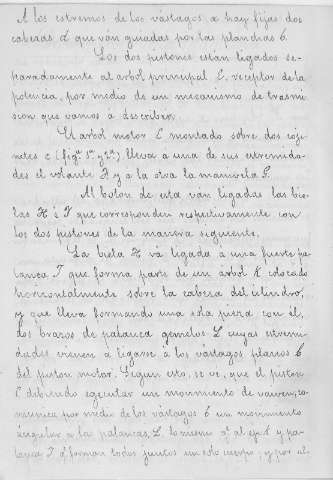 A los estremos de los vástagos a hay fijas dos
cabezas d que ván guiadas por las planchas 6.
Los dos pistones están ligados se-
paradamente al arbol principal E, receptor de la
potencia, por medio de un mecanismo de trasmi-
sion que vamos a describir.
El arbol motor E montado sobre dos coji-
netes e (figs 1ª y 2ª) lleva á una de sus estremida-
des el volante y a la otra la manivela G.
Al boton de esta ván ligadas las bie-
las H é I que corresponden respectivamente con
los dos pistones de la manera siguiente.
La biela H vá ligada a una fuerte pa-
lanca J que forma parte de un árbol K colocado
horizontalmente sobre la cabeza del cilindro,
y que lleva formando una sola pieza con él,
dos brazos de palanca gemelos L cuyas estremi-
dades vienen á ligarse á los vástagos planos 6
del piston motor. Segun esto, se vé, que el piston
C debiendo egecutar un movimiento de vaiven, co-
munica por medio de los vástagos 6 un movimiento
á las palancas L, lo mismo al eje K y pa-
lanca J forman todos juntos un solo cuerpo, y por el